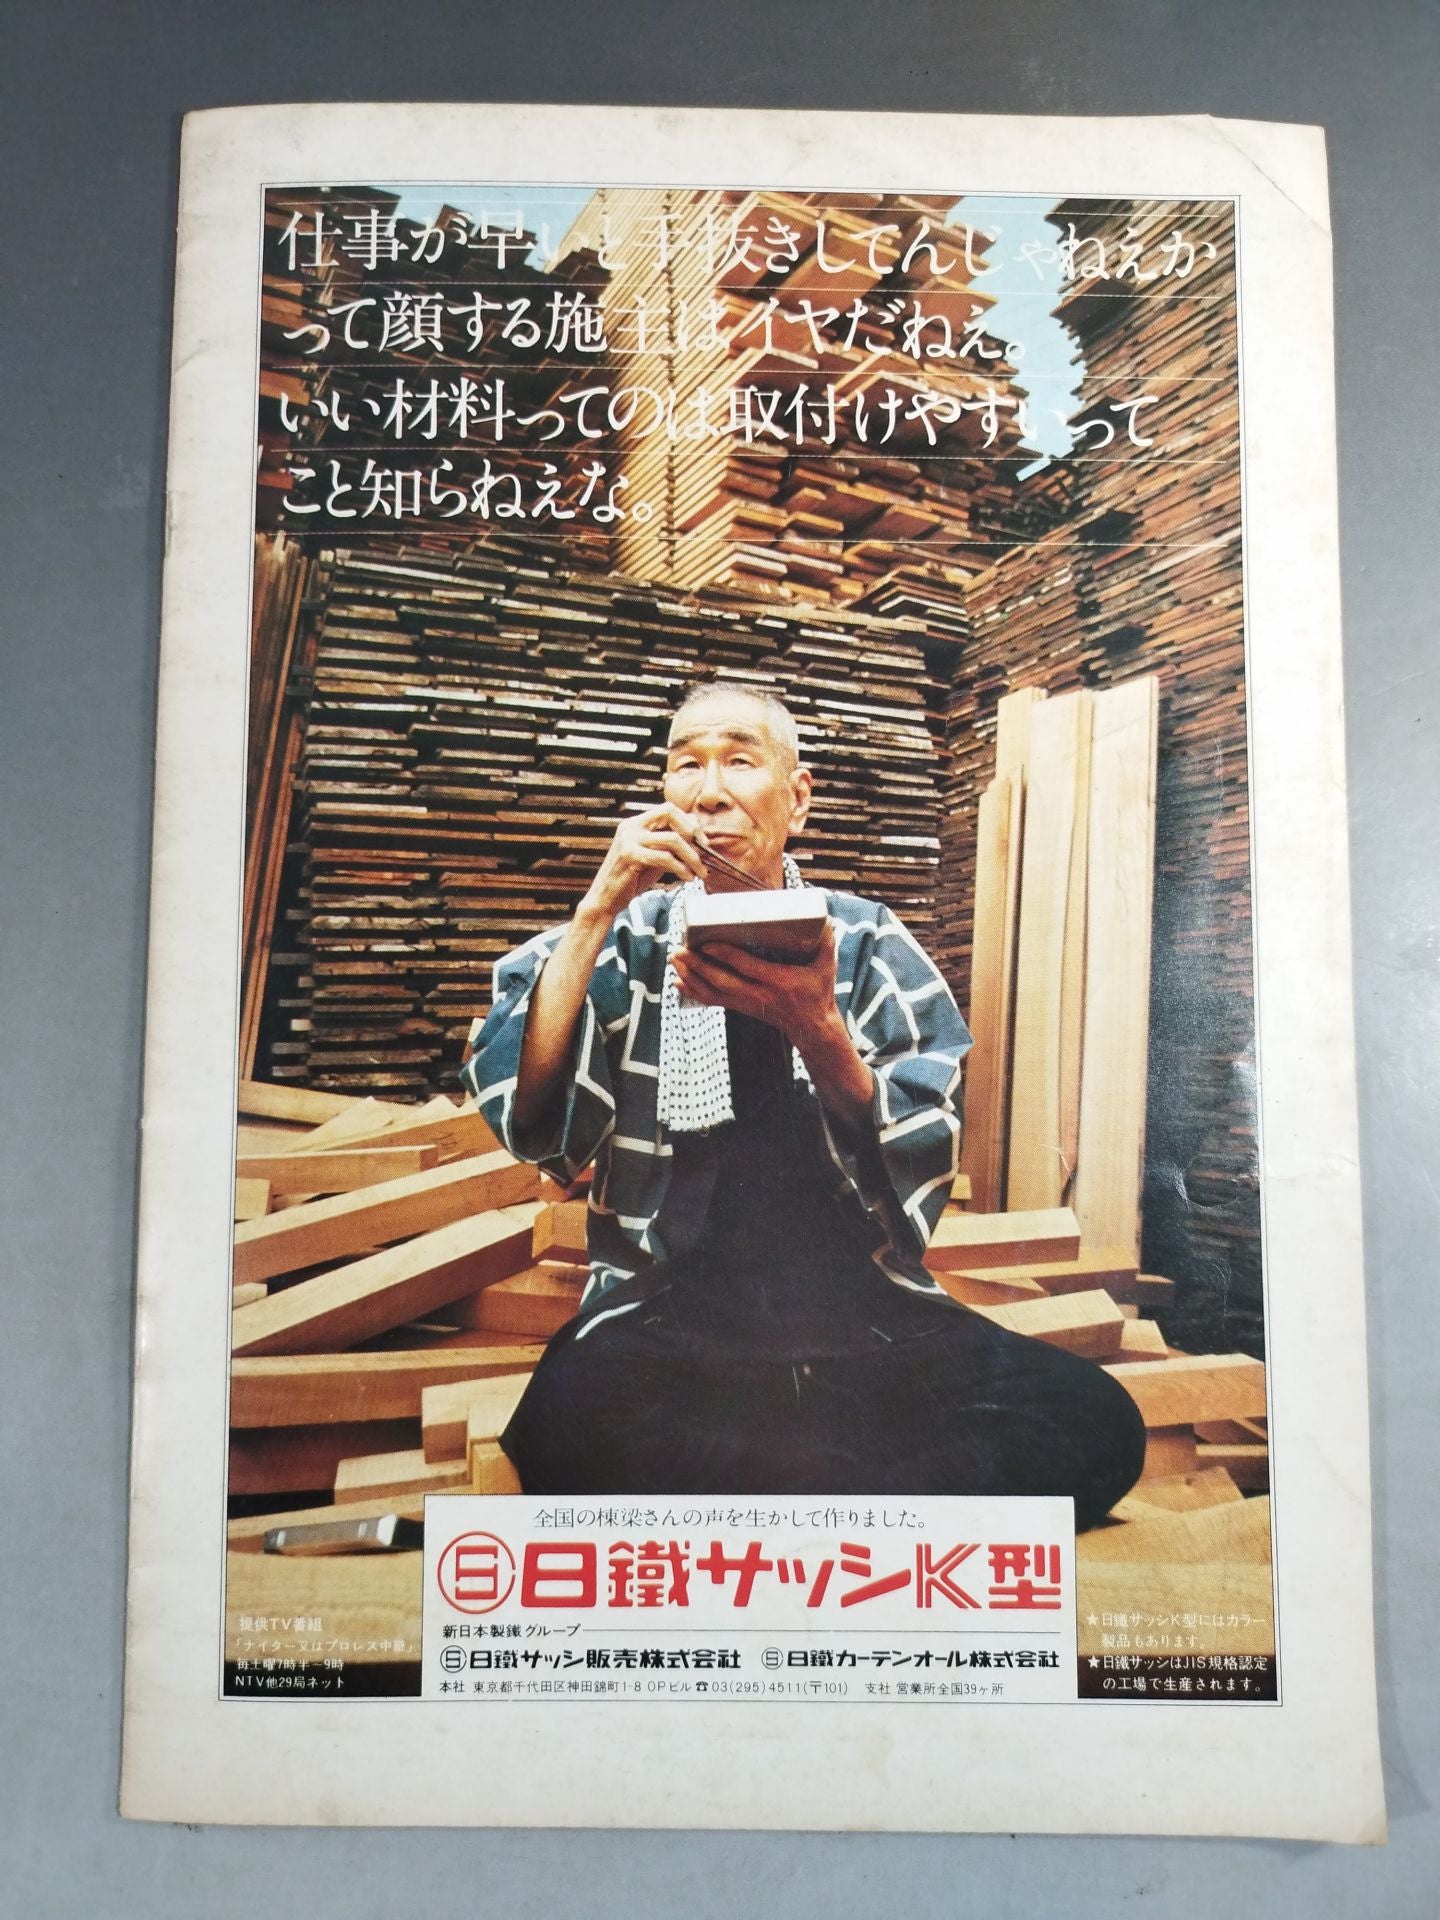 仕事が早いと手抜きしてんじゃねえか
って顔する施主はイヤだねぇ。
いい材料ってのは取付けやすいって
こと知らねえな。
全国の棟梁さんの声を生かして作りました。
日鐵サッシK型
新日本製鐵グループ
日鐵サッシ販売株式会社 日鐵カーテンオール株式会社
本社 東京都千代田区神田錦町1-8 OPビル ☎03(295)4511(〒101) 支社 営業所全国39ヶ所
提供TV番組
「ナイター又はプロレス中継」
毎土曜7時半〜9時
NTV他29局ネット
★日鐵サッシK型にはカラー
製品もあります。
★日鐵サッシはJIS規格認定
の工場で生産されます。